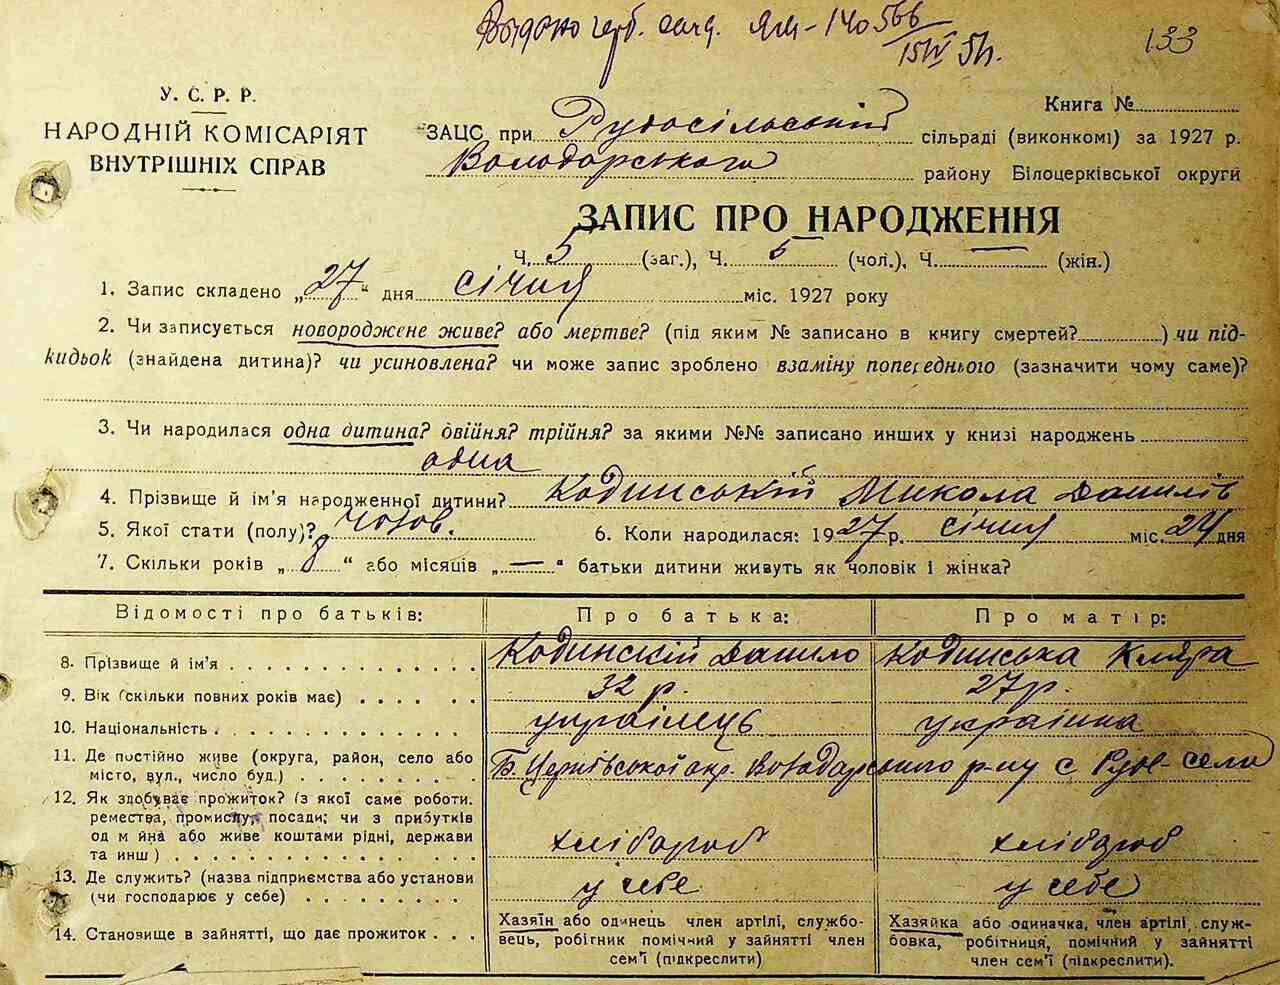 Видано герб. свід. ЯМ-140566
15/IV 51г.
133
У. С. Р. Р.
НАРОДНІЙ КОМІСАРІЯТ
ВНУТРІШНІХ СПРАВ
Книга №
ЗАЦС при Рудосільській сільраді (виконкомі) за 1927 р.
Володарського району Білоцерківської округи
ЗАПИС ПРО НАРОДЖЕННЯ
Ч. 5 (заг.), Ч. 5 (чол.), Ч. — (жін.)
1. Запис складено „27“ дня січня міс. 1927 року
2. Чи записується новороджене живе? або мертве? (під яким № записано в книгу смертей? ) чи під-
кидьок (знайдена дитина)? чи усиновлена? чи може запис зроблено взаміну попереднього (зазначити чому саме)?
3. Чи народилася одна дитина? двійня? трійня? за якими №№ записано инших у книзі народжень
одна
4. Прізвище й ім'я народженної дитини? Кодинський Микола Данилів
5. Якої стати (полу)? чолов. 6. Коли народилася: 1927 р. січня міс. 24 дня
7. Скільки років „8“ або місяців „—“ батьки дитини живуть як чоловік і жінка?
Відомості про батьків: Про батька: Про матір:
8. Прізвище й ім'я Кодинскій Данило Кодинська Кляра
9. Вік (скільки повних років має) 32 р. 27 р.
10. Національність українець українка
11. Де постійно живе (округа, район, село або
місто, вул., число буд.) Б. Церківської окр. Володарського р-ну с Руде-село
12. Як здобуває прожиток? (з якої саме роботи,
ремества, промислу, посади; чи з прибутків
од майна або живе коштами рідні, держави
та инш) хлібороб хлібороб
13. Де служить? (назва підприємства або установи
(чи господарює у себе) у себе у себе
14. Становище в зайнятті, що дає прожиток
Хазяїн або одинець член артілі, службо-
вець, робітник помічний у зайнятті член
сем'ї (підкреслити)
Хазяйка або одиначка, член артілі, служ-
бовка, робітниця, помічний у зайнятті
член сем'ї (підкреслити).